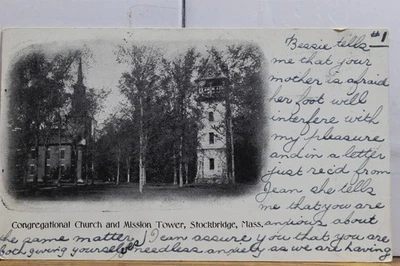 #1
Bessie tells
me that your
mother is afraid
her foot will
interfere with
my pleasure
and in a letter
just rec'd from
Jean she tells
me that you are
Congregational Church and Mission Tower, Stockbridge, Mass.
anxious about
the same matter. I can assure you that you are
both giving yourselves needless anxiety as we are having